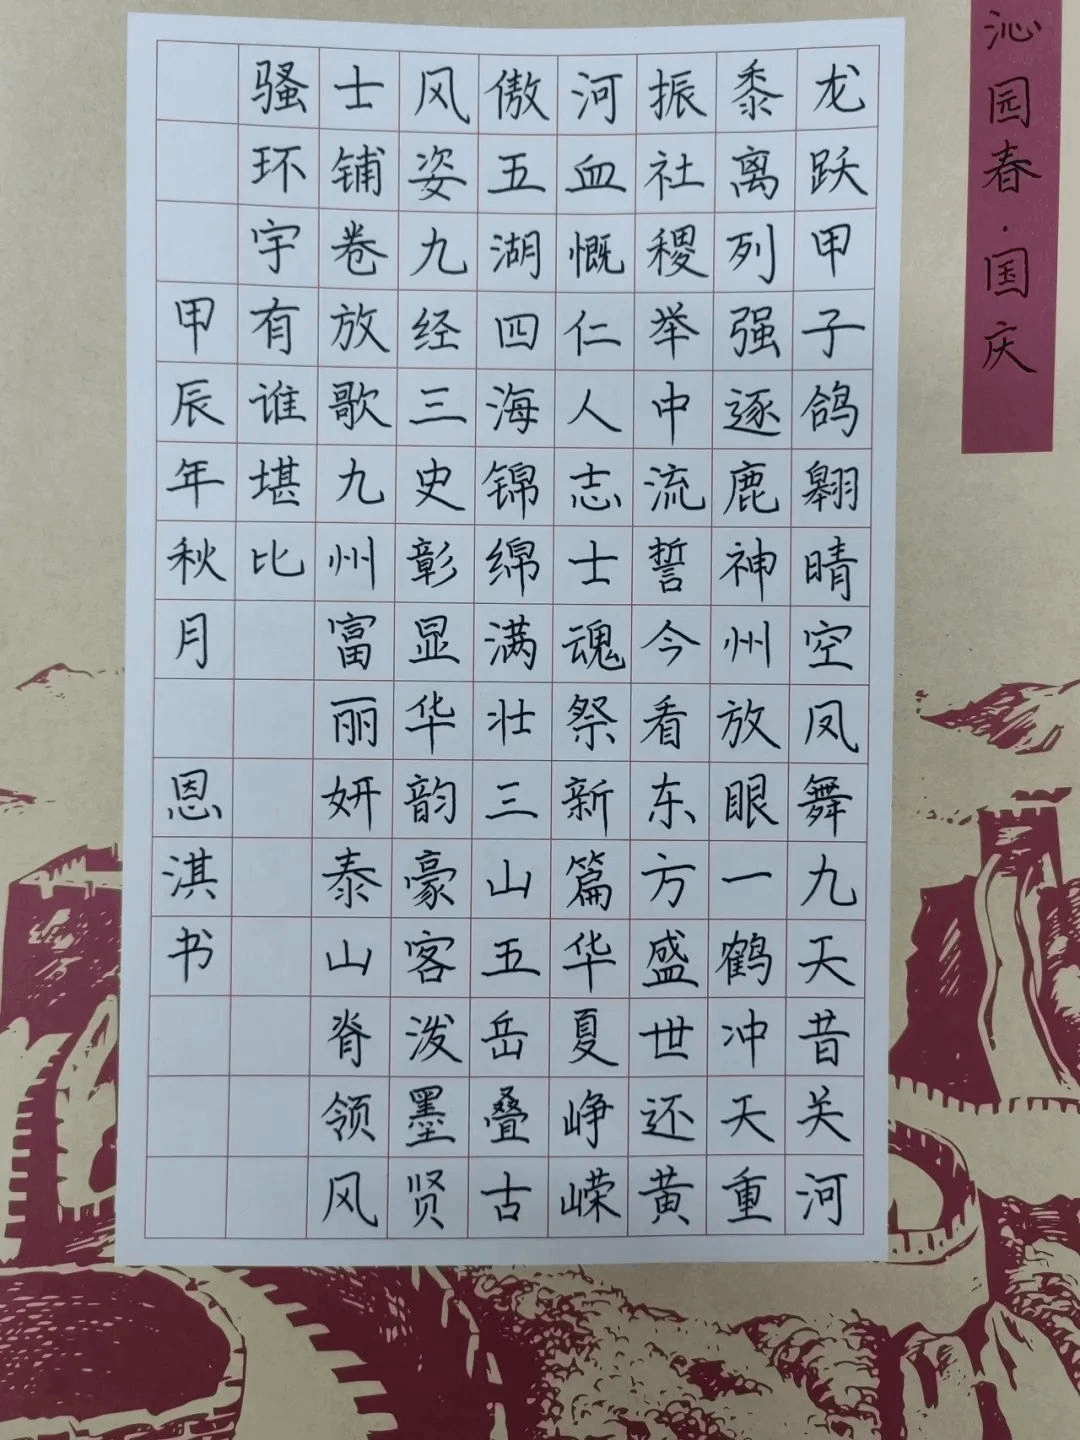 沁园春·国庆
龙跃甲子鸽翱晴空凤舞九天昔关河
黍离列强逐鹿神州放眼一鹤冲天重
振社稷举中流誓今看东方盛世还黄
河血慨仁人志士魂祭新篇华夏峥嵘
傲五湖四海锦绵满壮三山五岳叠古
风姿九经三史彰显华韵豪客泼墨贤
士铺卷放歌九州富丽妍泰山脊领风
骚环宇有谁堪比
甲辰年秋月 恩淇书